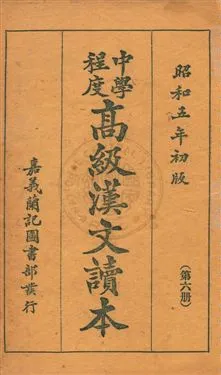 昭和五年初版
（第六册）
中學程度
高級漢文讀本
嘉義蘭記圖書部發行